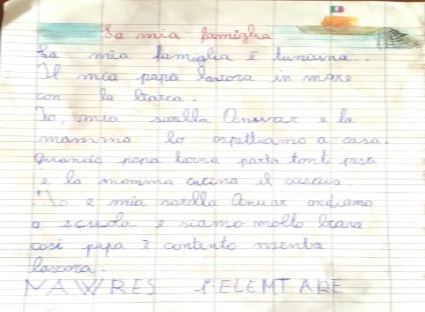 La mia famiglia
La mia famiglia è tunisina..
Il mio papà lavora in mare
con la barca.
Io, mia sorella Anuar e la
mamma lo aspettiamo a casa.
Quando papà torna porta tanti pesci
e la mamma cucina il cuscus.
Io e mia sorella Anuar andiamo
a scuola e siamo molto brave
così papà è contento mentre
lavora.
NAWRES 1ª ELEMTARE